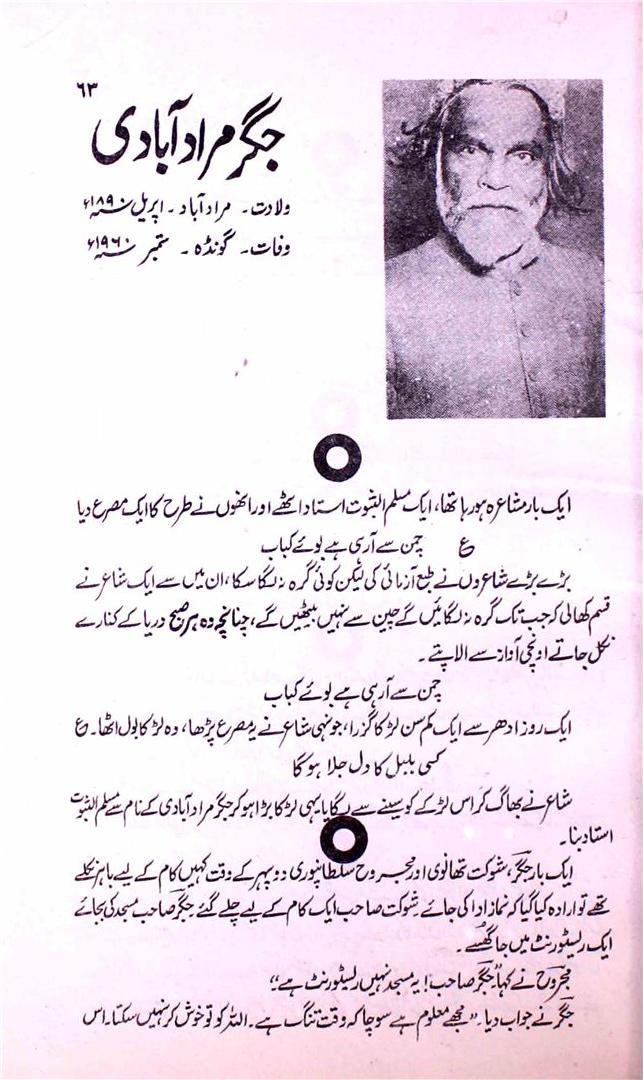 ۶۳
جگر مراد آبادی
ولادت۔ مراد آباد۔ اپریل ۱۸۹۰ء
وفات۔ گونڈہ۔ ستمبر ۱۹۶۰ء
ایک بار مشاعرہ ہو رہا تھا، ایک مسلم الثبوت استاد اٹھے اور انھوں نے طرح کا ایک مصرع دیا
ع چمن سے آرہی ہے بوئے کباب
بڑے بڑے شاعروں نے طبع آزمائی کی لیکن کوئی گرہ نہ لگا سکا، ان میں سے ایک شاعر نے
قسم کھالی کہ جب تک گرہ نہ لگائیں گے چین سے نہیں بیٹھیں گے، چنانچہ وہ ہر صبح دریا کے کنارے
نکل جاتے اونچی آواز سے الاپتے۔
چمن سے آرہی ہے بوئے کباب
ایک روز ادھر سے ایک کم سن لڑکا گزرا، جونہی شاعر نے یہ مصرع پڑھا، وہ لڑکا بول اٹھا۔ ع
کسی بلبل کا دل جلا ہو گا
شاعر نے بھاگ کر اس لڑکے کو سینے سے لگایا یہی لڑکا بڑا ہو کر جگر مراد آبادی کے نام سے مسلم الثبوت
استاد بنا۔
ایک بار جگر، شوکت تھانوی اور مجروح سلطانپوری دوپہر کے وقت کہیں کام کے لیے باہر نکلے
تھے تو ارادہ کیا گیا کہ نماز ادا کی جائے۔ شوکت صاحب ایک کام کے لیے چلے گئے جگر صاحب مسجد کی بجائے
ایک ریسٹورنٹ میں جا گھسے۔
مجروح نے کہا "جگر صاحب! یہ مسجد نہیں ریسٹورنٹ ہے"
جگر نے جواب دیا۔ "مجھے معلوم ہے سوچا کہ وقت تنگ ہے۔ اللہ کو تو خوش کر نہیں سکتا۔ اس